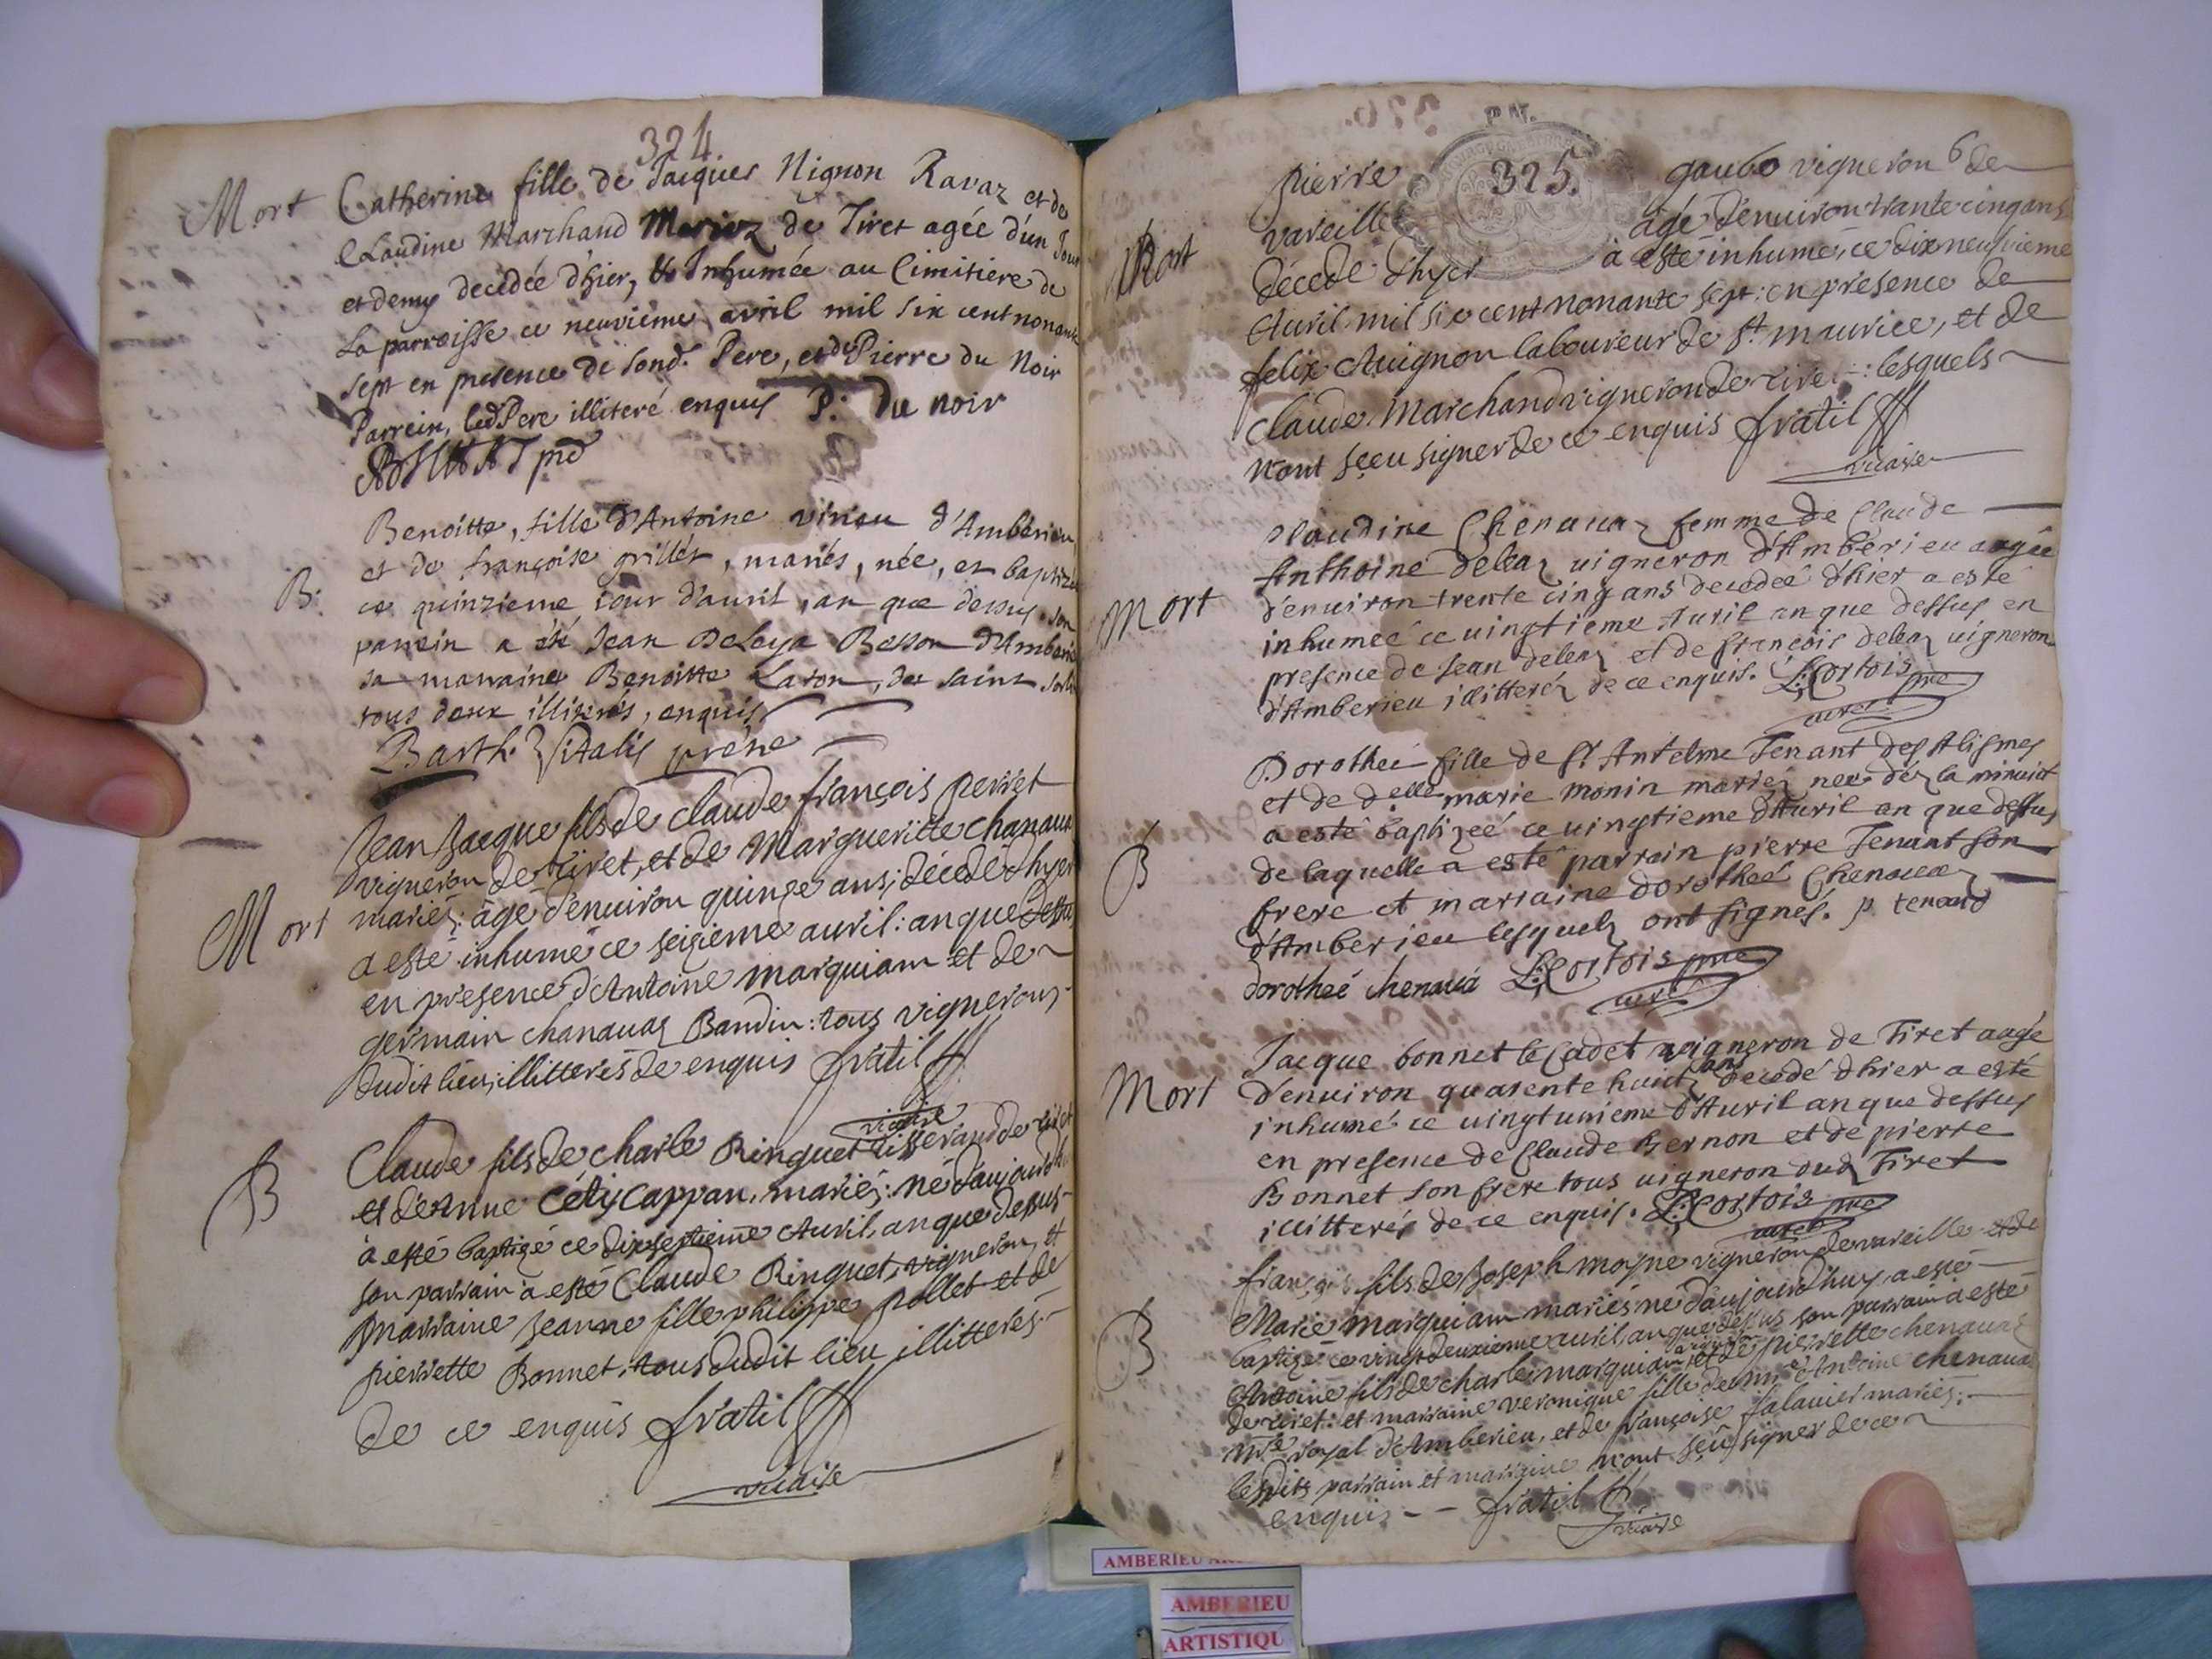 324.
Mort
Catherine fille de Jacques Nignon Ravaz et de
Claudine Marchand Mariez de Tiret agée d'un Jour
et demy decedée d'hier, & Inhumée au Cimitiere de
La parroisse ce neuvième avril mil six cent nonante
sept en presence de sond. Pere, et de Pierre du Noir
Parrein, led Pere illiteré enquis P: Du noir
B:
Benoitte, fille d'Antoine vineu d'Amberieu
et de françoise grillet, mariés, née, et baptizée
ce quinzieme jour d'avril, an que dessus. son
parrein a été Jean DeLeya Besson d'Amberieu
sa marraine Benoitte Laron, de saint
tous deux illiterés, enquis
Barth. Vitalis prêtre
Mort
Jean Jacque fils de claude françois perret
vigneron de tiret, et de Margueritte chanauaz
mariéz: âgé d'enuiron quinze ans; décédé d'hyer
a esté inhumé ce seizieme auril: an que dessus
en presence d'Antoine marquiam et de
germain chanauaz Bandin: tous vignerons
dudit lieu, illitterés de enquis fratil
vicaire
B
Claude fils de charle Ringuet tisserand de tiret
et d'Anne Cappan, mariéz: né d'aujourdhui
à esté baptizé ce dixseptieme Auril, an que dessus
son parrain à esté Claude Ringuet, vigneron, et
marraine Jeanne fille philippe pollet et de
pierrette Bonnet: tous dudit lieu illitterés
de ce enquis fratil
vicaire
325.
pierre gaubo vigneron de
vareille âgé d'enuiron trante cinq ans
Mort
décédé d'hyer à esté inhumé, ce dixneufuieme
Auril mil six cent nonante sept: en presence de
felix Auignon laboureur de st. maurice, et de
Claude Marchand vigneron de tiret: lesquels
n'ont sçeu signer de ce enquis fratil
vicaire
Claudine Chenauaz femme de Claude
Anthoine deleaz uigneron d'Amberieu aagée
Mort
d'enuiron trente cinq ans decedeé d'hier a esté
inhumeé ce uingtieme Auril an que dessus en
presence de Jean deleaz et de françois deleaz uigneron
d'Amberieu illitteréz de ce enquis. L: Cortois pre
curé
Dorotheé fille de sr Antelme Tenant des Alismes
et de delle marie monin mariez neé déz la minuict
a esté baptizeé ce uingtieme d'Auril an que dessus
B
de laquelle a esté parrain pierre Tenant son
frere et marraine dorotheé Chenauaz
d'Amberieu lesquels ont signés. p. tenand
dorotheé chenaua L: Cortois pre
curé
Jacque bonnet le Cadet uigneron de Tiret aagé
Mort
d'enuiron quarente huict ans decedé d'hier a esté
inhumé ce uingtunieme d'Auril an que dessus
en presence de Claude Bernon et de pierre
Bonnet son frere tous uigneron dud Tiret
illitterés de ce enquis. L: Cortois pre
curé
françois fils de Joseph moyne vigneron de vareille et de
Marie marquiam mariés né d'aujourdhuy, a esté
B
baptizé ce vingtdeuxieme auril, an que dessus son parrain a esté
Antoine fils de charle marquiam et de pierrette chenauaz
de tiret: et marraine veronique fille de mre Antoine chenauaz
nre royal d'Amberieu, et de françoise falauier mariés:
lesdits parrain et marraine n'ont sçeu signer de ce
enquis - - fratil
vicaire
AMBERIEU
AMBERIEU
ARTISTIQU